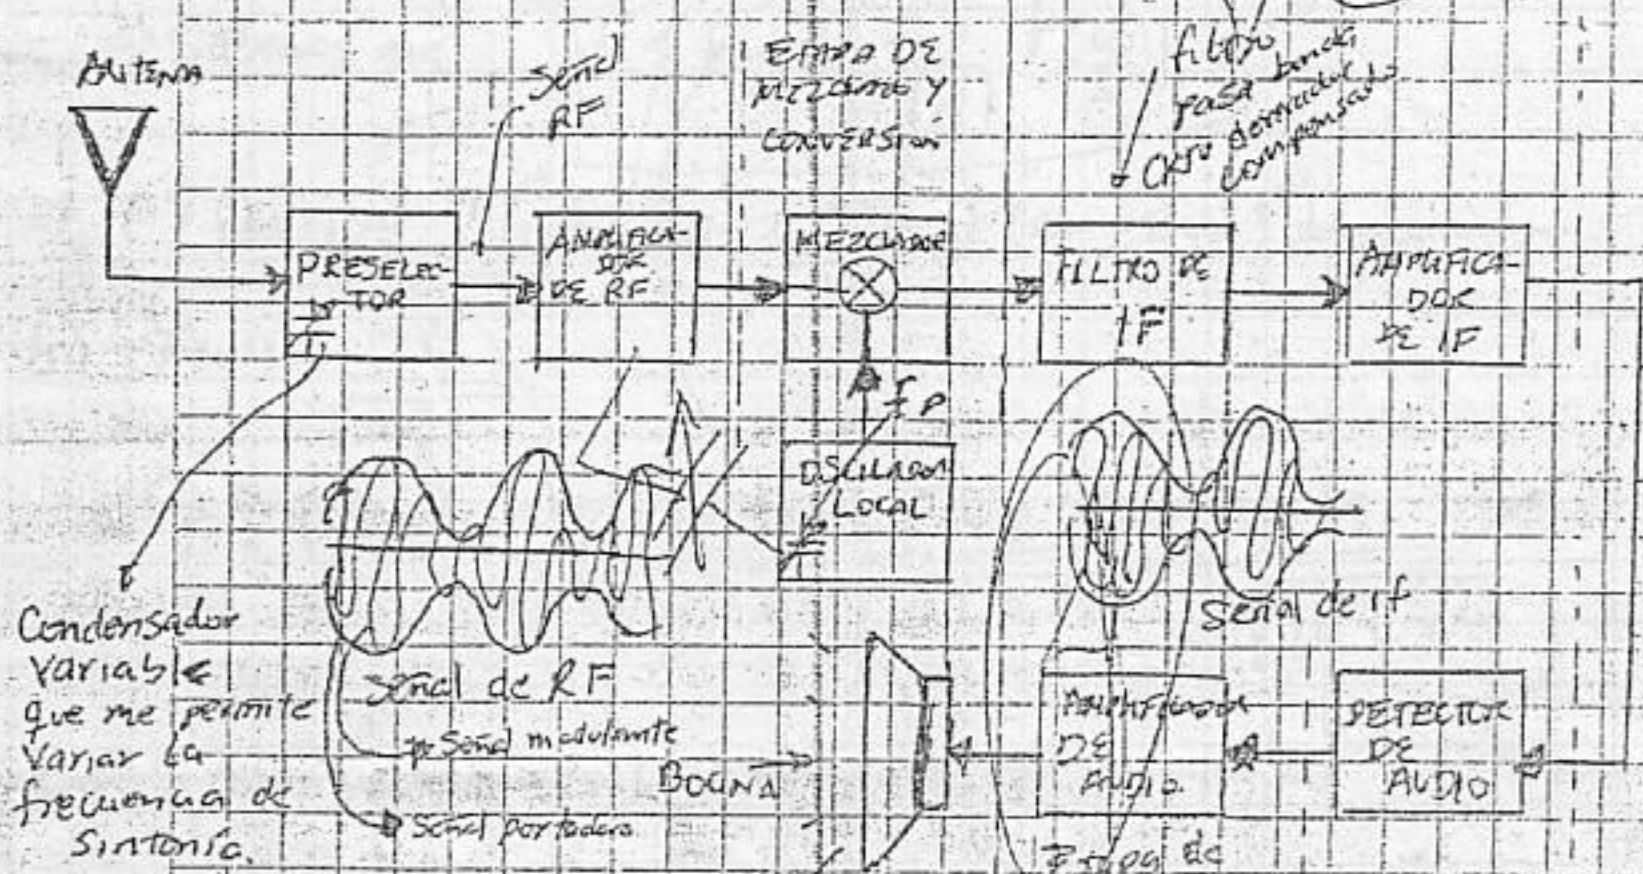 ANTENA
Señal
RF
ETAPA DE
MEZCLADO Y
CONVERSIÓN
filtro
pasa banda
derivador
compensado
PRESELEC-
TOR
AMPLIFICA-
DOR
DE RF
MEZCLADOR
FILTRO DE
IF
AMPLIFICA-
DOR
DE IF
OSCILADOR
LOCAL
Condensador
variable
que me permite
variar la
frecuencia de
sintonía.
Señal de RF
Señal modulante
Señal portadora
BOCINA
Señal de IF
AMPLIFICADOR
DE
AUDIO
DETECTOR
DE
AUDIO
Etapa de